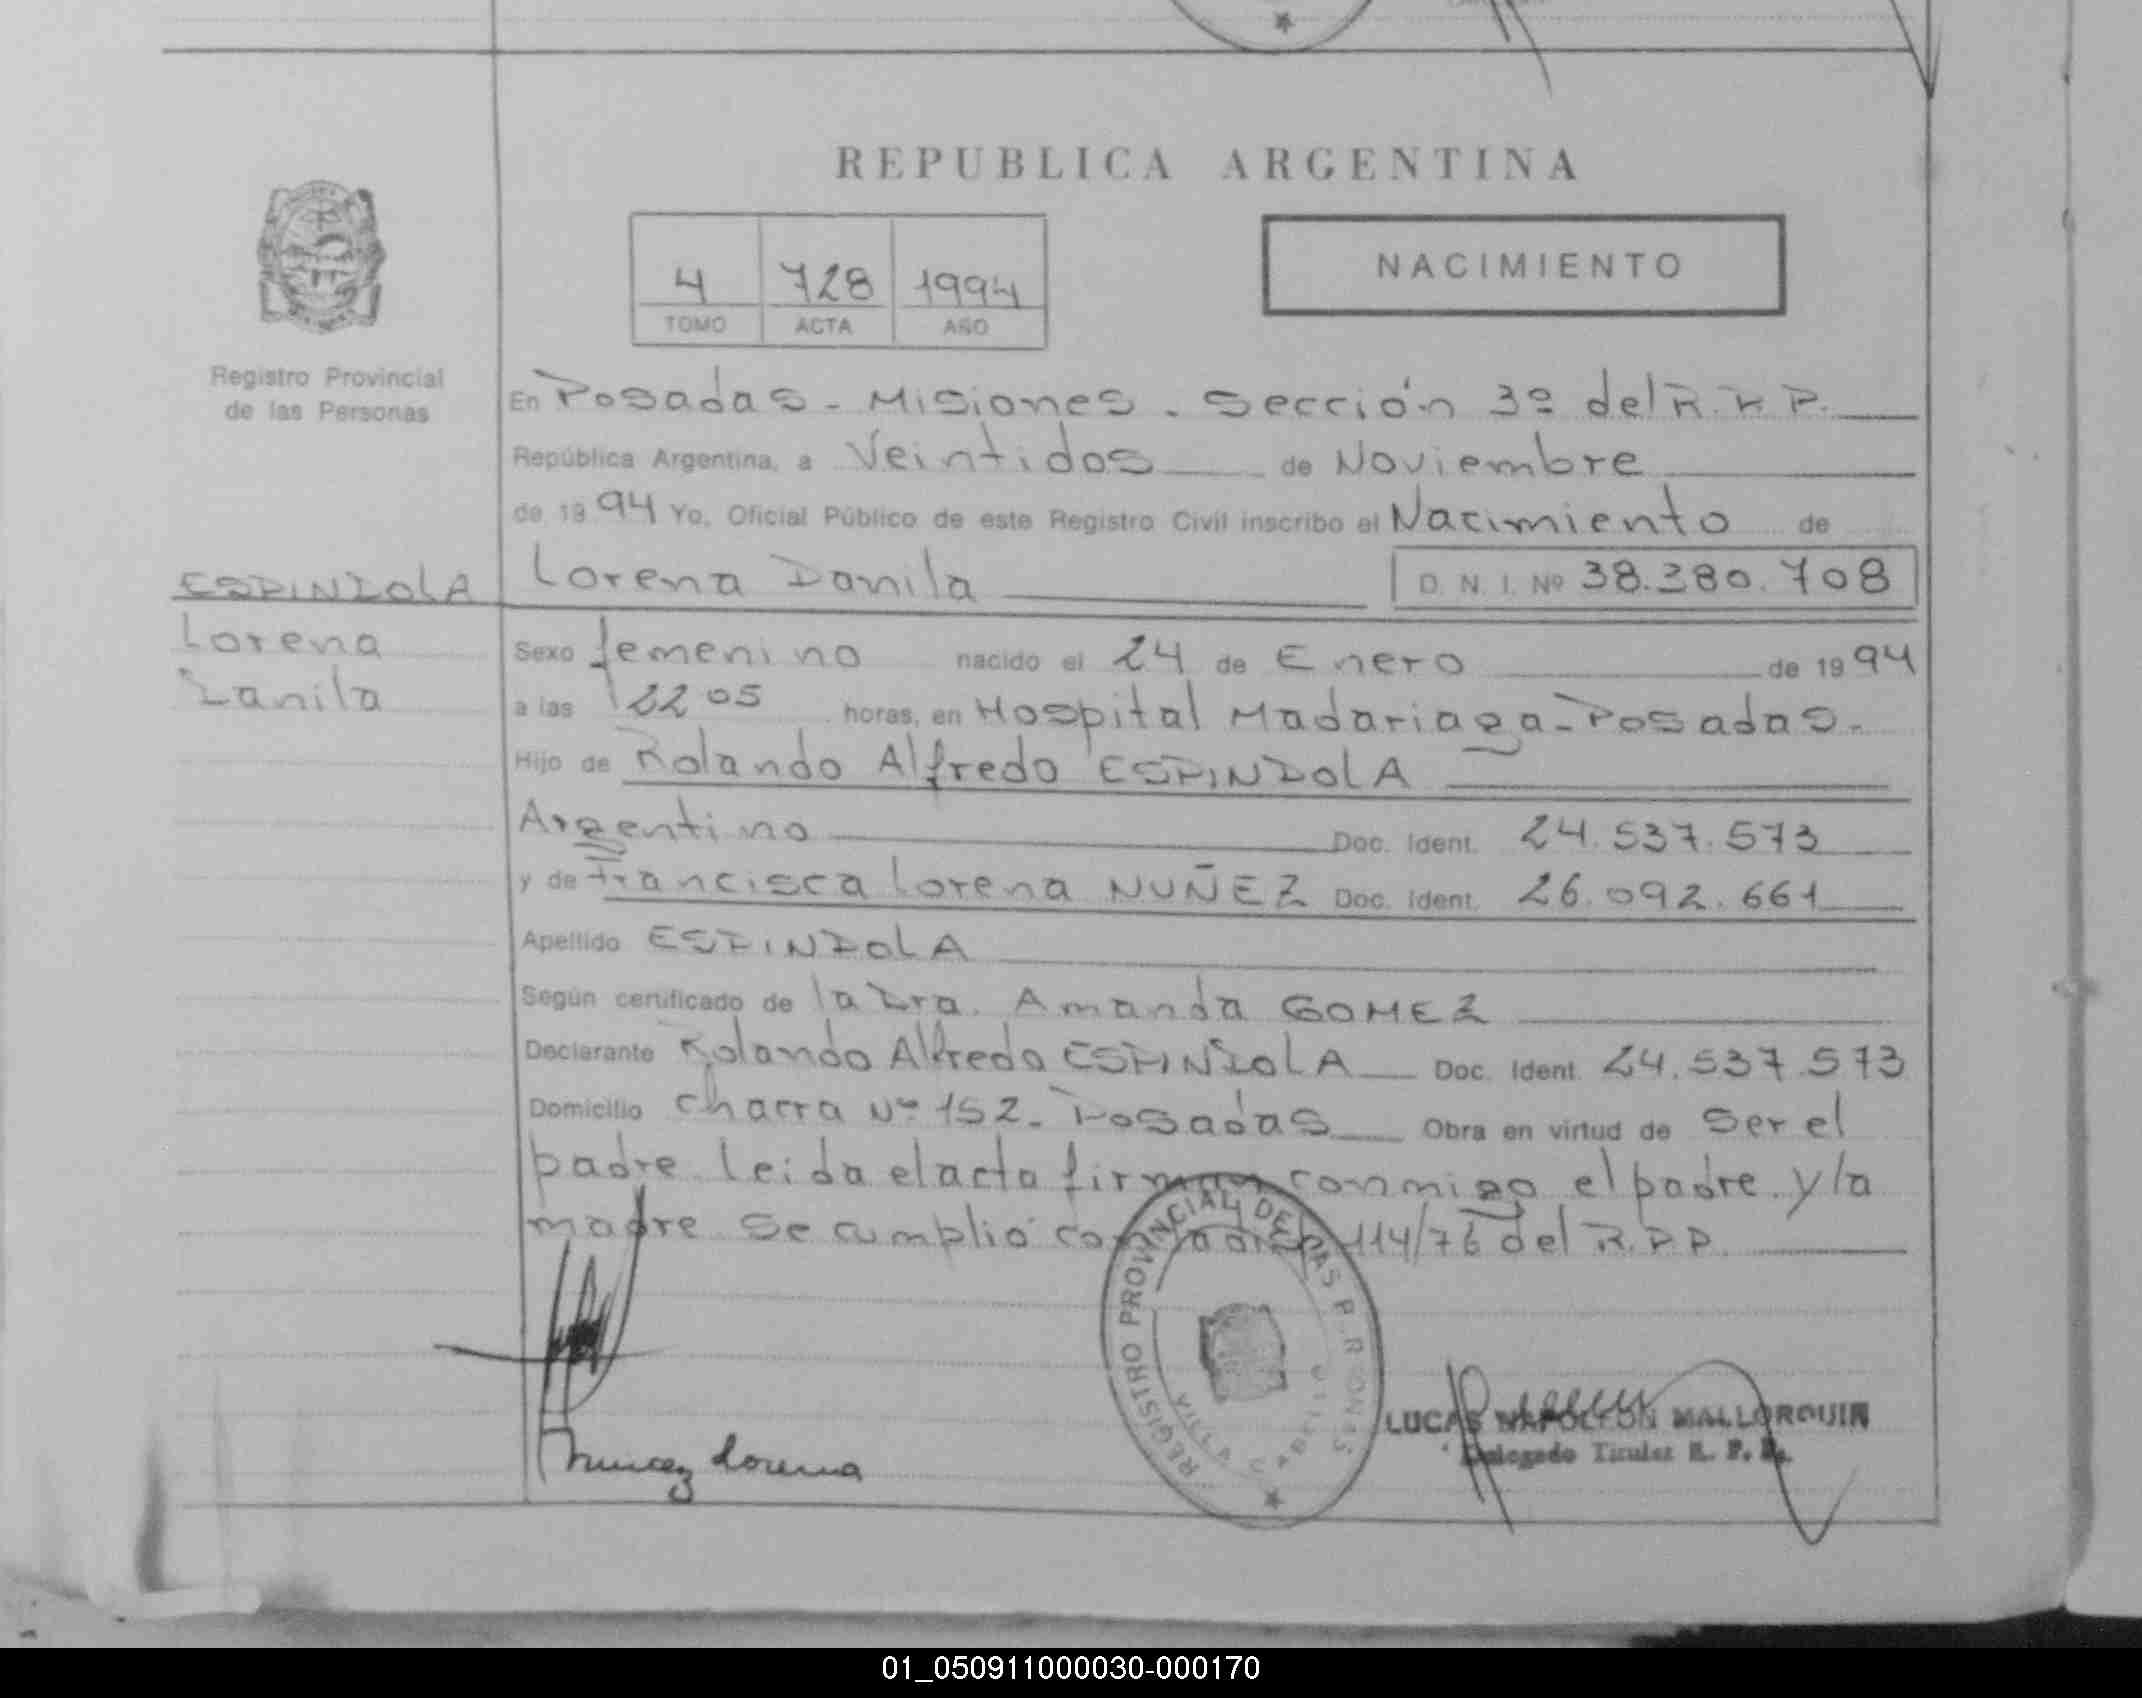 REPUBLICA ARGENTINA
NACIMIENTO
4 728 1994
TOMO ACTA AÑO
Registro Provincial
de las Personas
En Posadas - Misiones. Sección 3º del R. P. P.
República Argentina, a Veintidos de Noviembre
de 19 94 Yo, Oficial Público de este Registro Civil inscribo el Nacimiento de
ESPINDOLA
Lorena
Danila
Lorena Danila D. N. I. Nº 38.380.708
Sexo femenino nacido el 24 de Enero de 19 94
a las 22 05 horas, en Hospital Madariaga - Posadas.
Hijo de Rolando Alfredo ESPINDOLA
Argentino Doc. Ident. 24.537.573
y de Francisca Lorena NUÑEZ Doc. Ident. 26.092.661
Apellido ESPINDOLA
Según certificado de la Dra. Amanda GOMEZ
Declarante Rolando Alfredo ESPINDOLA Doc. Ident. 24.537.573
Domicilio Chacra Nº 152. Posadas Obra en virtud de Ser el
padre. Leida el acta firman conmigo el padre y la
madre. Se cumplió 114/76 del R.P.P.
REGISTRO PROVINCIAL DE LAS PERSONAS
LUCAS NAPOLEON MALLORQUIN
Delegado Titular R. P. P.
Nuñez Lorena
01_050911000030-000170